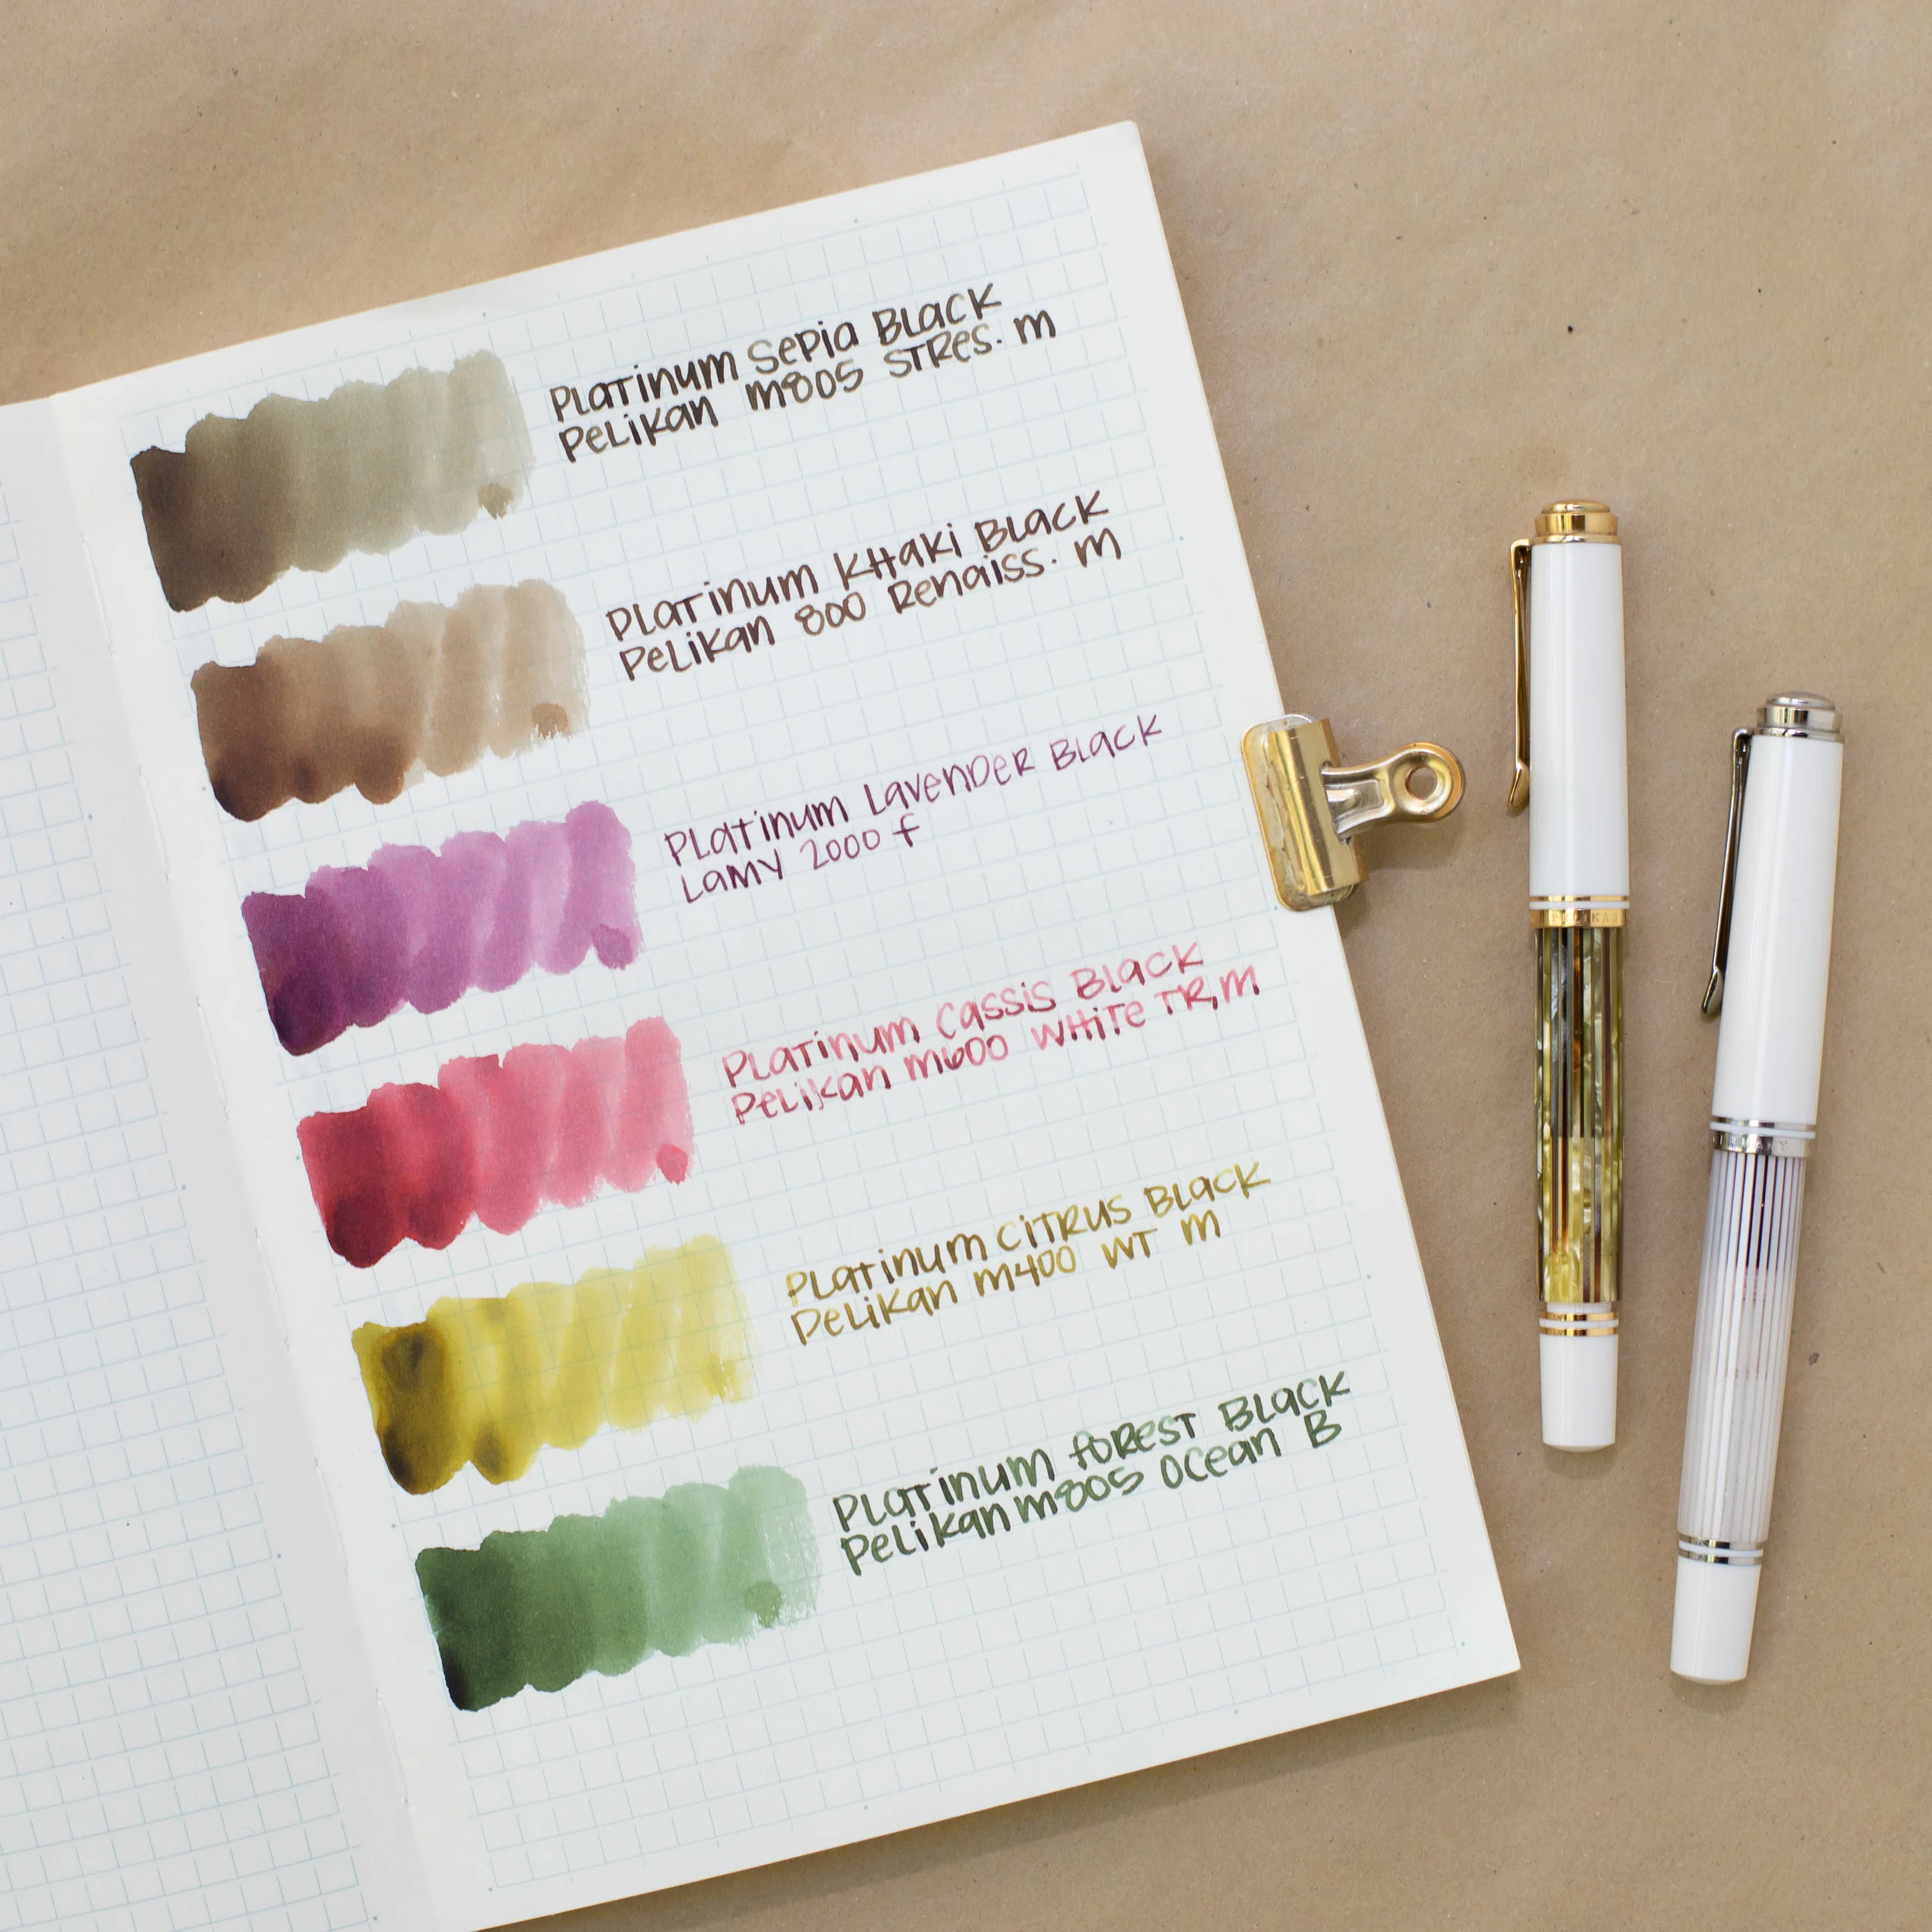 Platinum Sepia Black
Pelikan m805 STRes. m
Platinum Khaki Black
Pelikan 800 Renaiss. m
Platinum Lavender Black
Lamy 2000 f
Platinum Cassis Black
Pelikan m600 White TR, M
Platinum Citrus Black
Pelikan m400 WT M
Platinum Forest Black
Pelikan m805 Ocean B